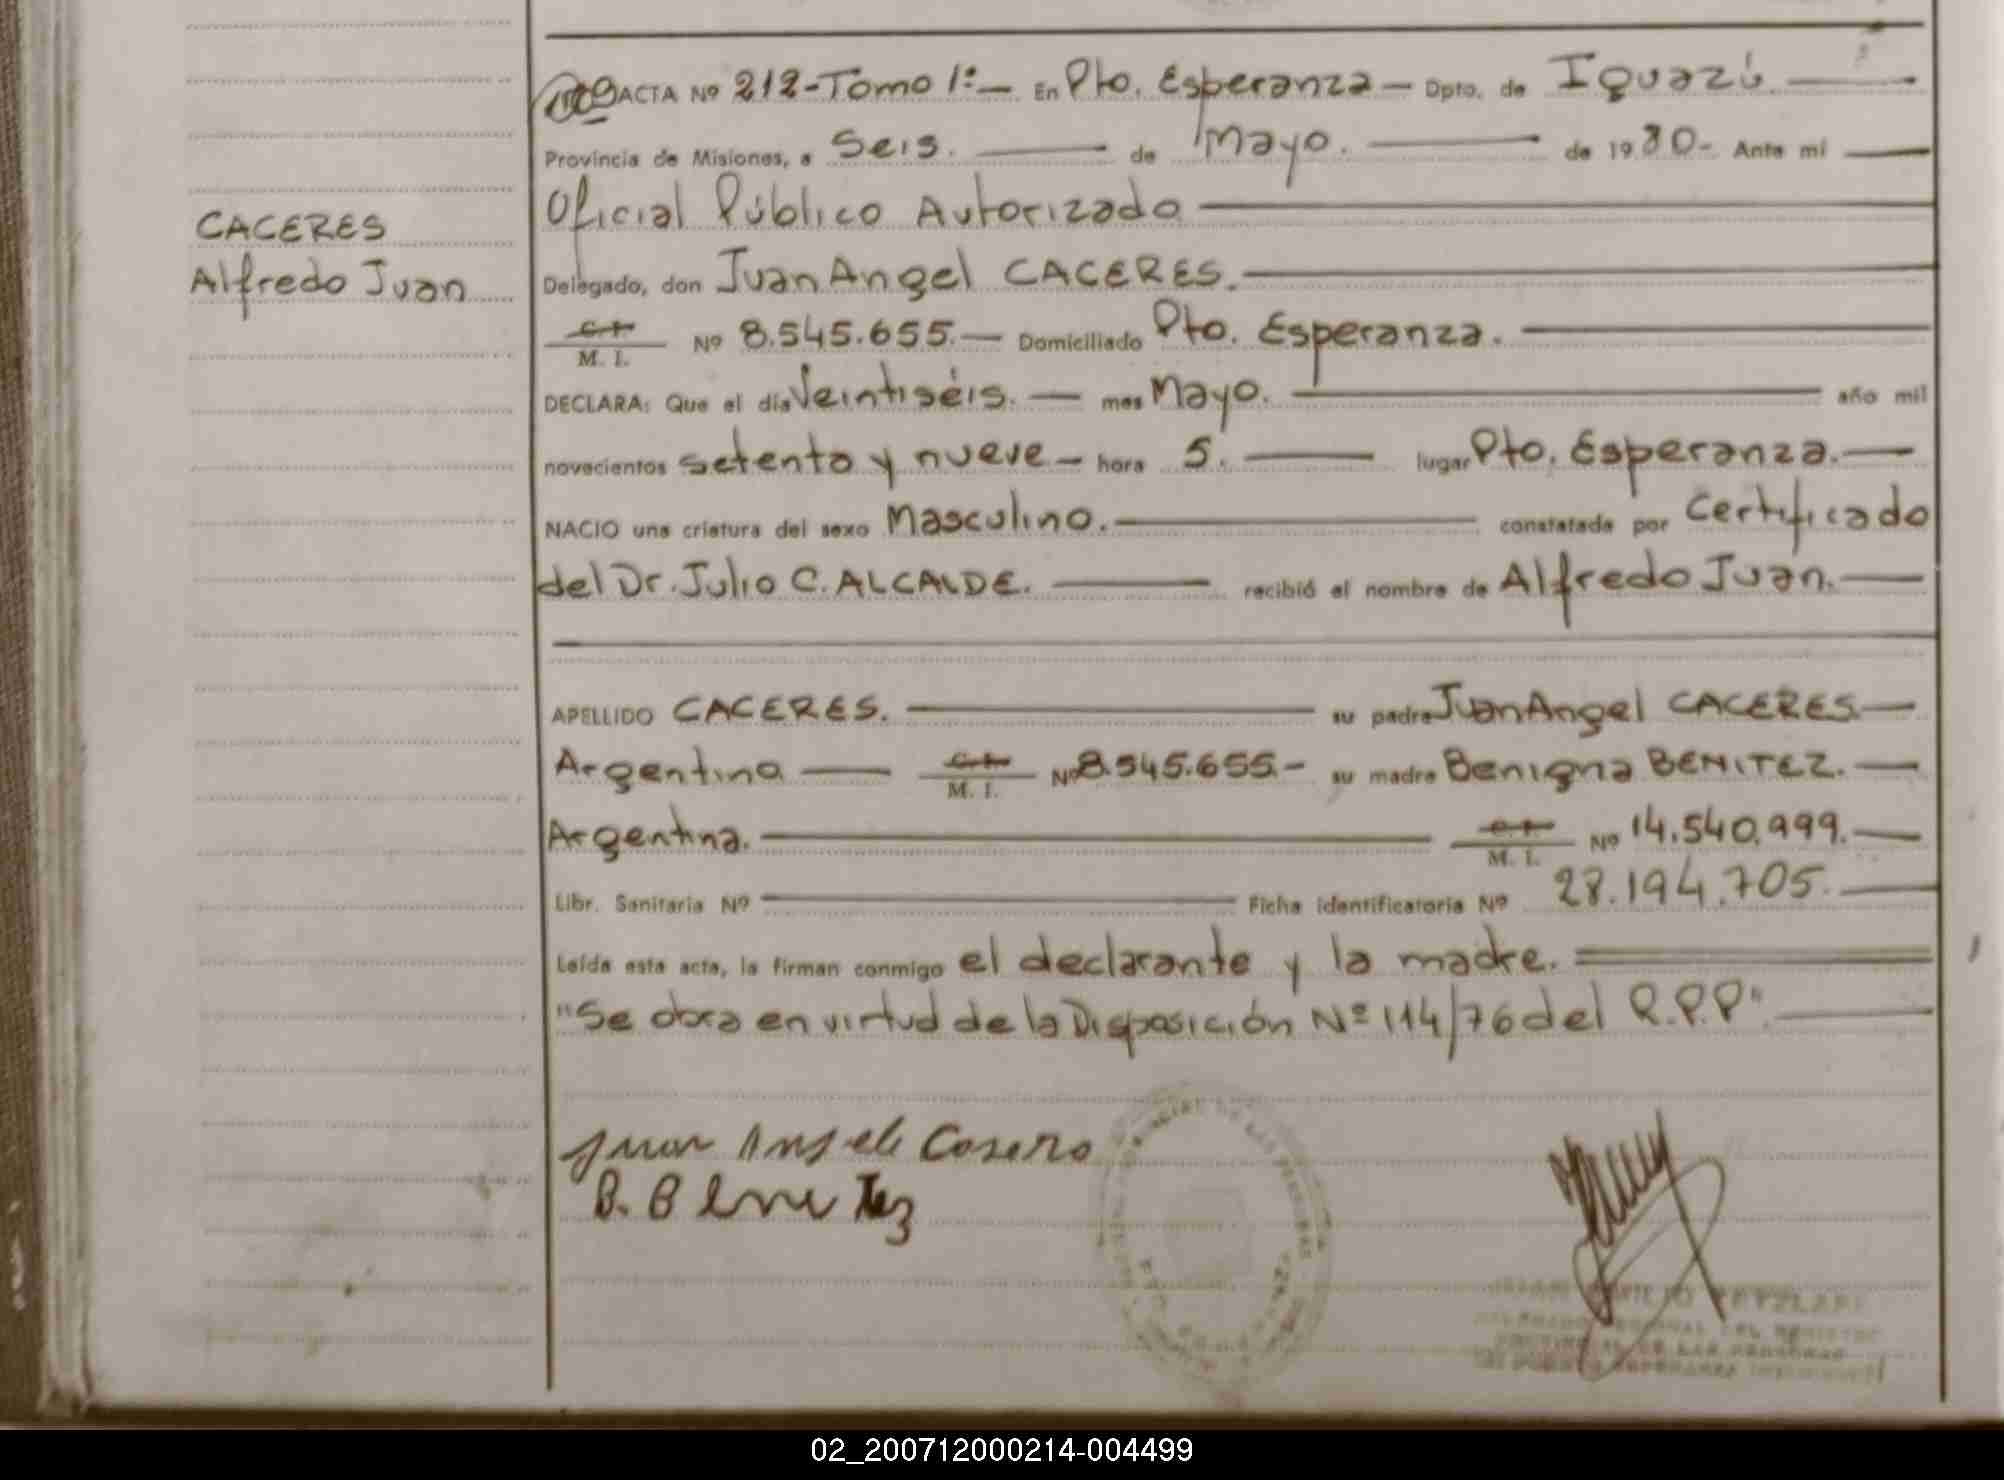 ACTA Nº 212-Tomo 1º.— En Pto. Esperanza — Dpto. de Iguazú.
Provincia de Misiones, a Seis. de Mayo. de 1980- Ante mí
Oficial Público Autorizado
CACERES
Alfredo Juan
Delegado, don Juan Angel CACERES.
C.I.
M. I. Nº 8.545.655.— Domiciliado Pto. Esperanza.
DECLARA: Que el día Veintiséis. — mes Mayo. año mil
novecientos setenta y nueve — hora 5. lugar Pto. Esperanza.—
NACIO una criatura del sexo Masculino. constatada por Certificado
del Dr. Julio C. ALCALDE. recibió el nombre de Alfredo Juan.—
APELLIDO CACERES. su padre Juan Angel CACERES—
Argentino — C.I. M. I. Nº 8.545.655.- su madre Benigna BENITEZ.—
Argentina. C.I. M. I. Nº 14.540.999.—
Libr. Sanitaria Nº Ficha identificatoria Nº 28.194.705.
Leída esta acta, la firman conmigo el declarante y la madre.
"Se obra en virtud de la Disposición Nº 114/76 del R.P.P".
Juan
B. Benitez
02_200712000214-004499